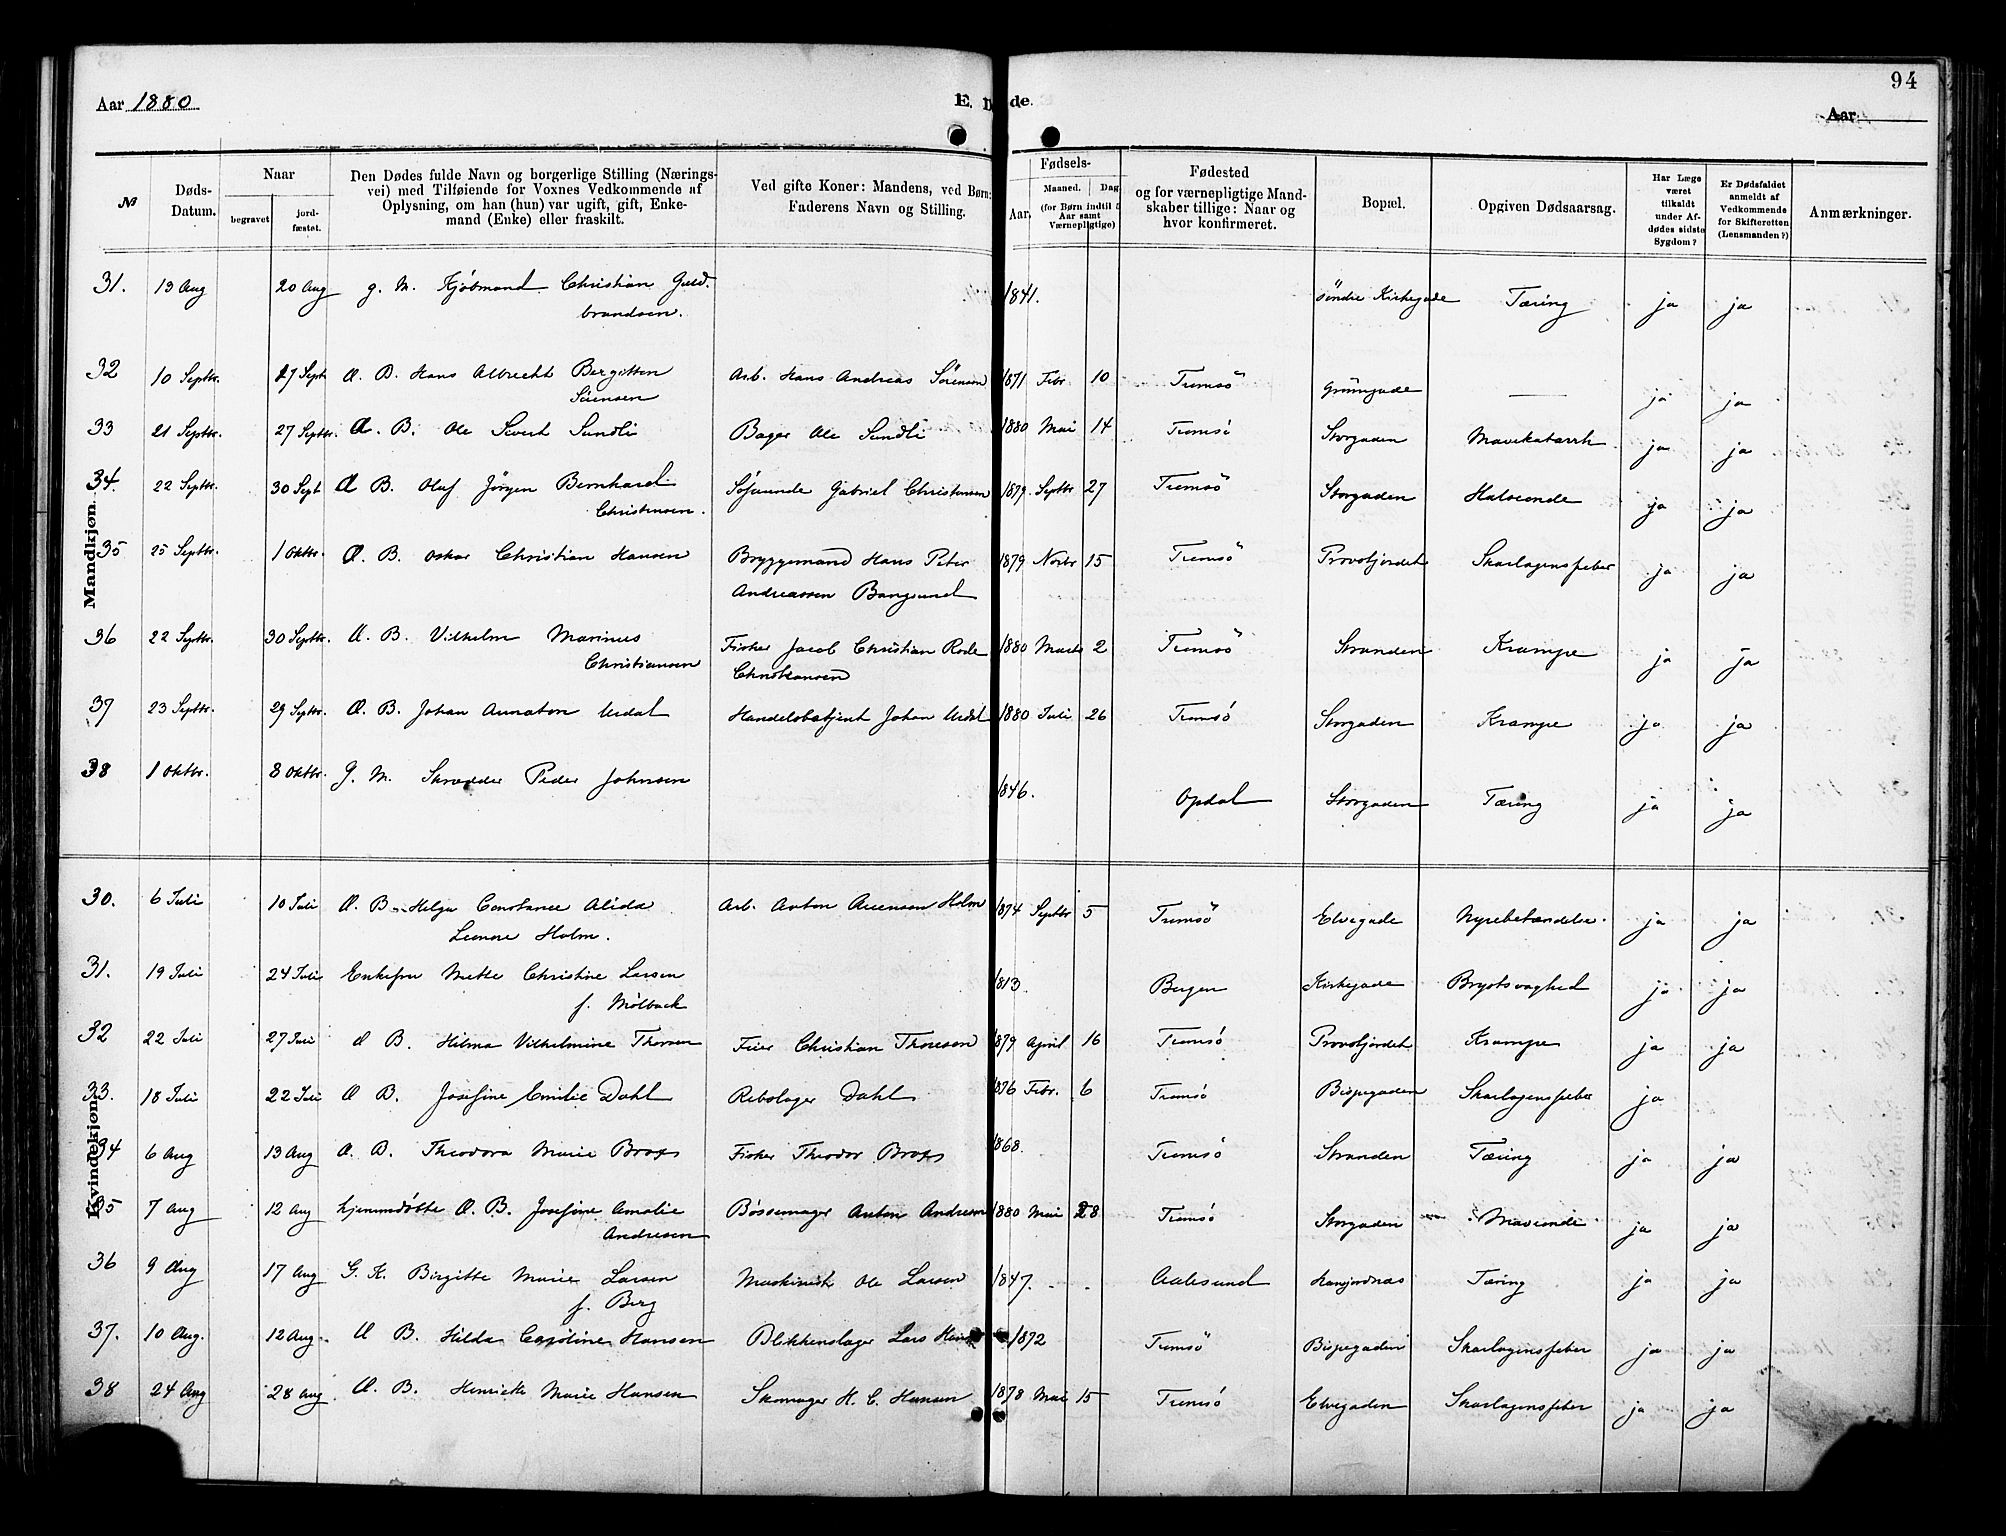 94
Aar 1880
E. Døde.
Aar
№
Døds-Datum.
Naar
begravet
jord-fæstet.
Den Dødes fulde Navn og borgerlige Stilling (Nærings-
vei) med Tilføiende for Voxnes Vedkommende af
Oplysning, om han (hun) var ugift, gift, Enke-
mand (Enke) eller fraskilt.
Ved gifte Koner: Mandens, ved Børn:
Faderens Navn og Stilling.
Fødsels-
Aar.
Maaned.
Dag
(for Børn indtil
Aar samt
Værnepligtige)
Fødested
og for værnepligtige Mand-
skaber tillige: Naar og
hvor konfirmeret.
Bopæl.
Opgiven Dødsaarsag.
Har Læge
været
tilkaldt
under Af-
dødes sidste
Sygdom?
Er Dødsfaldet
anmeldt af
Vedkommende
for Skifteretten
(Lensmanden?)
Anmærkninger.
Mandkjøn.
31. 13 Aug 20 Aug g. M. Kjøbmand Christian Guld- 1841. söndre Kirkegade Tæring ja ja
brandsen.
32 10 Septbr. 17 Sept Æ. B. Hans Albrecht Bergitton Arb. Hans Andreas Sørensen 1871 Febr. 10 Tromsö Grönnegade — ja ja
Sörensen
33 21 Septbr. 27 Septbr. Æ. B. Ole Sivert Sundli Bager Ole Sundli 1880 Mai 14 Tromsö Storgaden Mavekatarrh ja ja
34. 22 Septbr. 30 Sept Æ B. Oluf Jörgen Bernhard Söfarende Gabriel Christensen 1879. Septbr 27 Tromsö Storgaden Halsonde ja ja
Christensen.
35 25 Septbr. 1 Oktbr. Æ. B. Oskar Christian Hansen Bryggemand Hans Peter 1879 Novbr 15 Tromsö Provstjordet Skarlagensfeber ja ja
Andreassen Bangsund
36 22 Septbr. 30 Septbr. Æ. B. Vilhelm Marinus Fisker Jacob Christian Rode 1880 Marts 2 Tromsö Stranden Krampe ja ja
Christiansen Christiansen
37 23 Septbr. 29 Septbr. Æ. B. Johan Annaton Urdal Handelsbetjent Johan Urdal 1880 Juli 26 Tromsö Storgaden Krampe ja ja
38 1 Oktbr. 8 Oktbr. G. M. Skrædder Peder Johnsen 1846. Opdal Storgaden Tæring ja ja
Kvindekjøn.
30. 6 Juli 10 Juli Æ. B. Helga Constance Alida Arb. Anton Arensen Holm 1874 Septbr 5 Tromsö Elvegade Nyrebetændelse. ja ja
Leonore Holm.
31. 19 Juli 24 Juli Enkefru Mette Christine Larsen 1813 Bergen Kirkegade Brystsvaghed ja ja
f. Mölback
32 22 Juli 27 Juli Æ B. Hilma Vilhelmine Thoresen Feier Christian Thoresen 1879 April 16 Tromsö Provstjordet Krampe ja ja
33. 18 Juli 22 Juli Æ B. Josefine Emilie Dahl Rebslager Dahl 1876 Febr. 6 Tromsö Bispegaden Skarlagensfeber ja
34 6 Aug 13 Aug Æ. B. Theodora Marie Brox Fisker Theodor Brox 1868. Tromsö Stranden Tæring ja ja
35 7 Aug 12 Aug hjemmedøbte Æ. B. Josefine Amalie Bössemager Anton Andresen 1880 Mai 28 Tromsö Storgaden Maveonde ja ja
Andresen
36 9 Aug 17 Aug G. K. Birgitte Marie Larsen Maskinist Ole Larsen 1847. Aalesund Tæring ja ja
f. Berg
37. 10 Aug. 12 Aug. Æ B. Hilda Caroline Hansen Blikkenslager Lars Hansen 1872 Tromsö Bispegaden Skarlagensfeber ja ja
38 24 Aug 28 Aug Æ. B. Henriette Marie Hansen Skomager H. C. Hansen 1878 Mai 15 Tromsö Elvegaden Skarlagensfeber ja ja